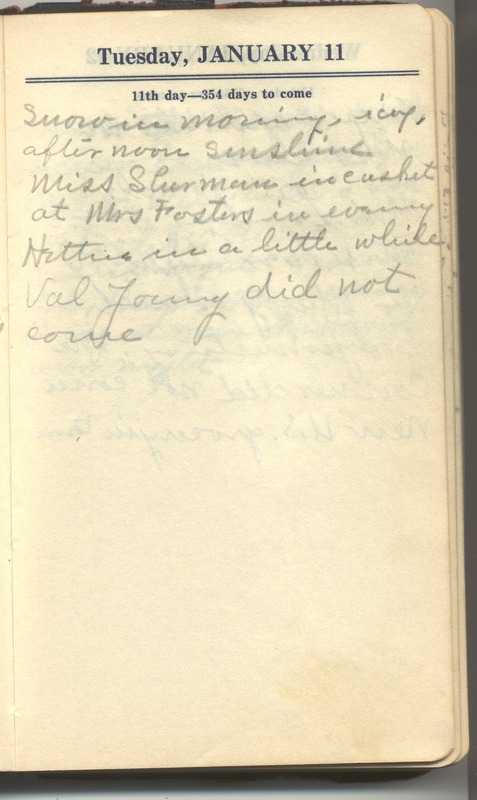 Tuesday, JANUARY 11
11th day—354 days to come
Snow in morning, icy,
afternoon sunshine
Miss Sherman in casket
at Mrs Fosters in evening
Hettie in a little while
Val Young did not
come